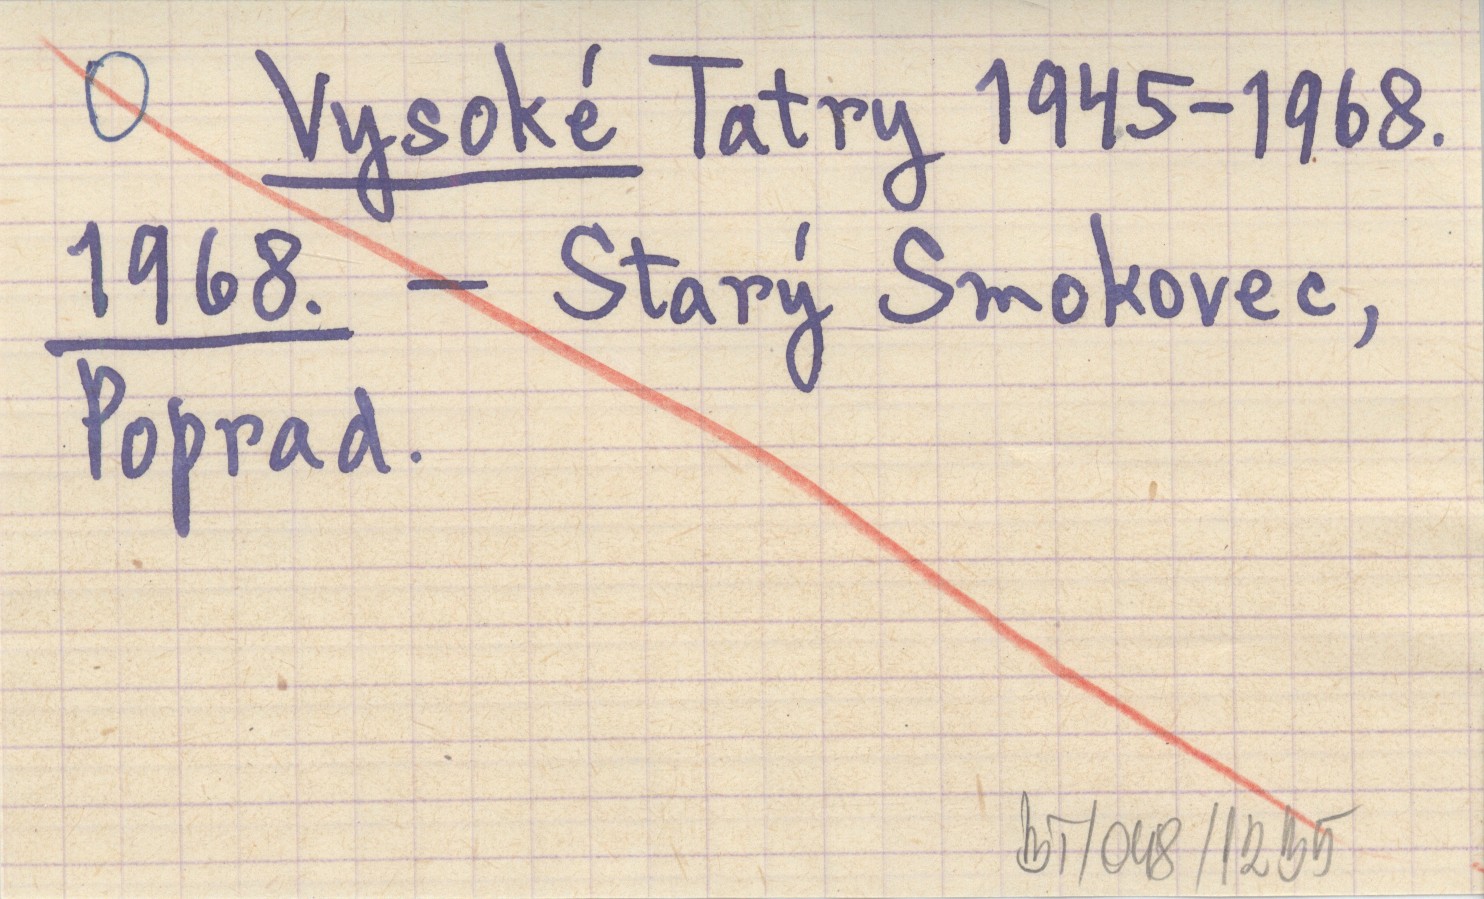 Vysoké Tatry 1945-1968.
1968. — Starý Smokovec,
Poprad.